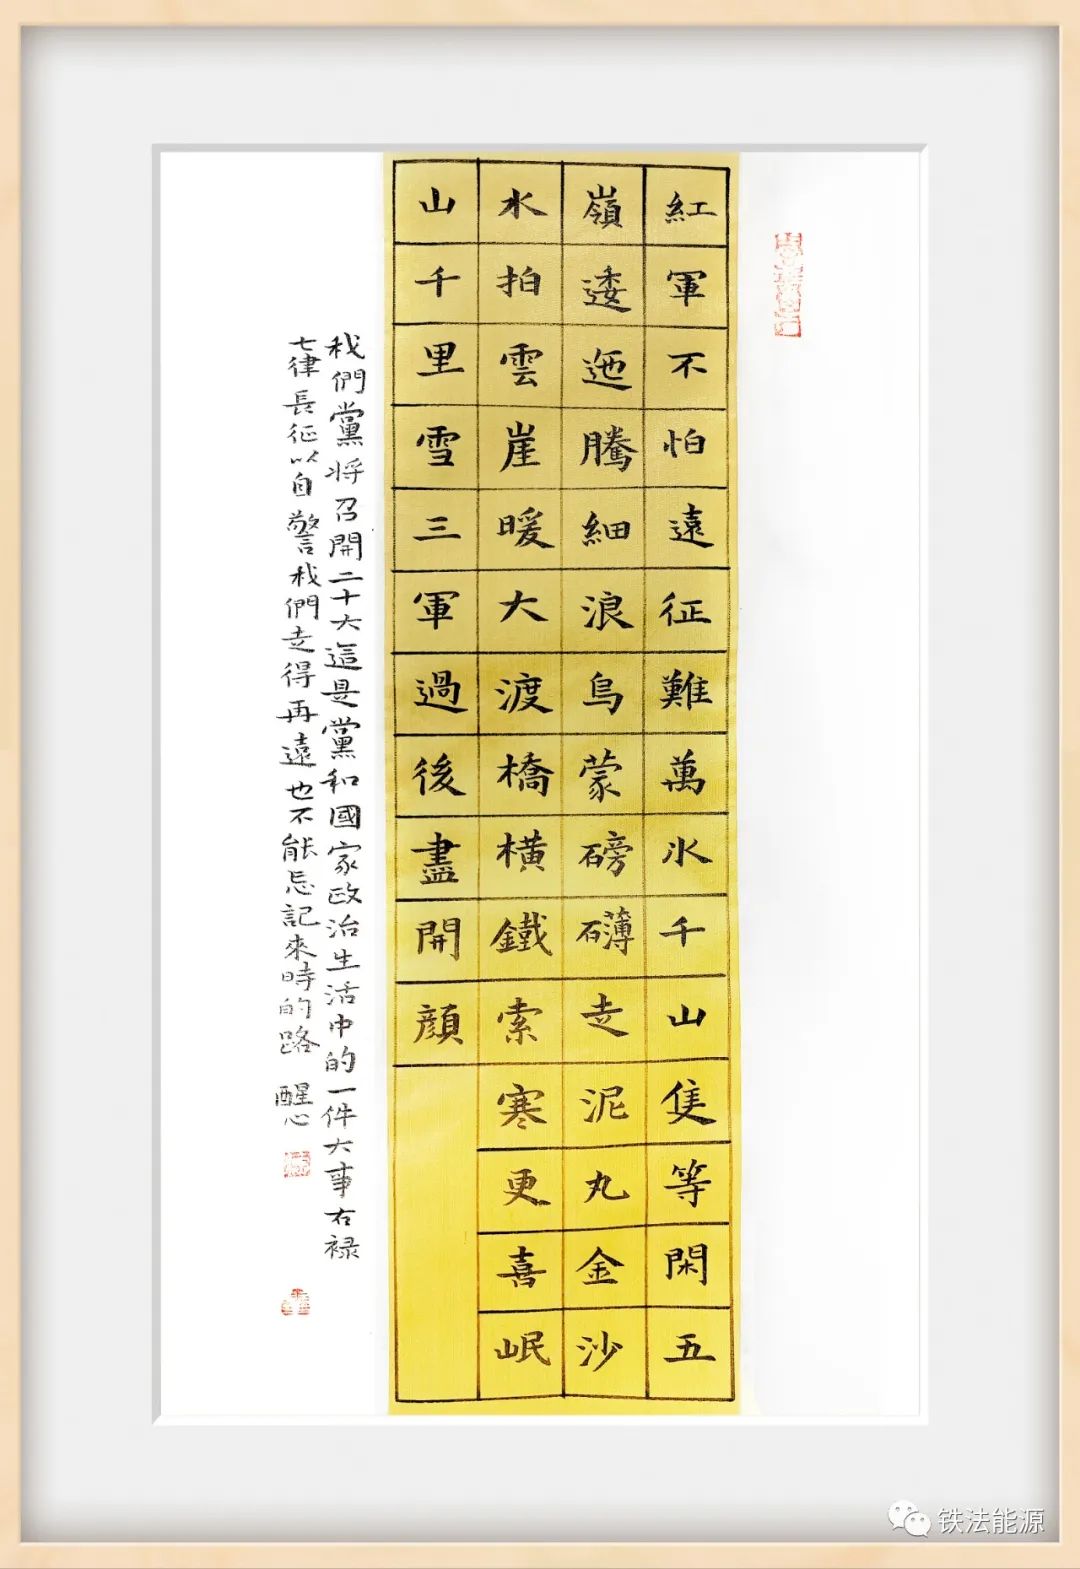 紅軍不怕遠征難萬水千山隻等閑五
嶺逶迤騰細浪烏蒙磅礴走泥丸金沙
水拍雲崖暖大渡橋横鐵索寒更喜岷
山千里雪三軍過後盡開顏
我們黨将召開二十大這是黨和國家政治生活中的一件大事右禄
七律長征以自警我們走得再遠也不能忘記來時的路 醒心
铁法能源